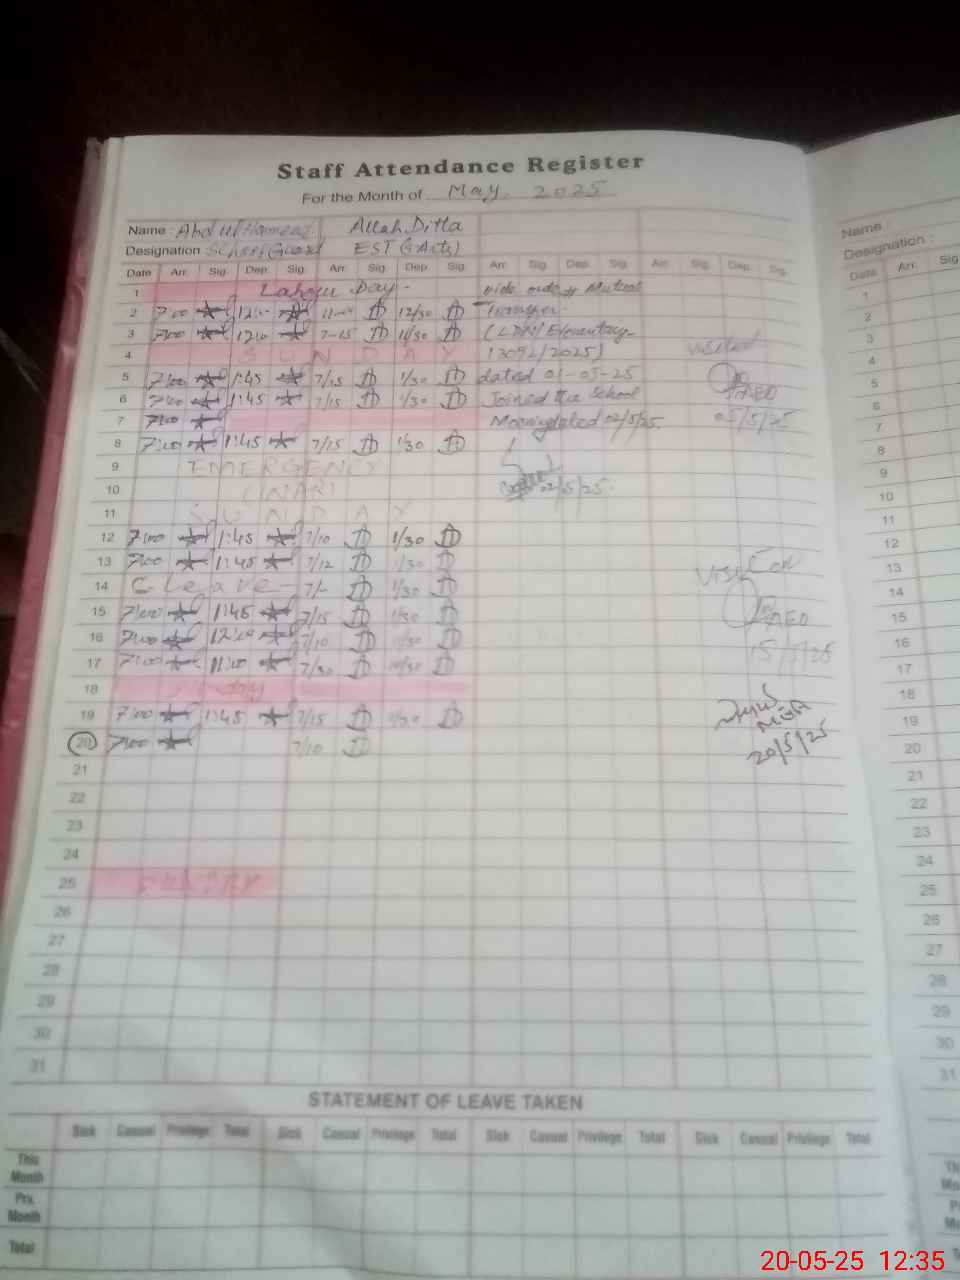 Staff Attendance Register
For the Month of May. 2025
Name : Abdul Hameed Allah Ditta
Designation : School Guard EST (S.Arts)
Date Arr. Sig. Dep. Sig. Arr. Sig. Dep. Sig. Arr. Sig. Dep. Sig. Arr. Sig. Dep. Sig.
1 Labour Day - vide order Mutual
2 7:00 12:00 12/30 Transfer
3 7:00 12:00 7-15 11/30
4 SUNDAY 13092/2025) Visited
5 7:00 1:45 7/15 1/30 dated 01-05-25
6 7:00 1:45 7/15 1/30 Joined the School AEO
7 7:00 02/5/25. 05/5/25
8 7:00 1:45 7/15 1/30
9 EMERGENCY
10 02/5/25.
11 SUNDAY
12 7:00 1:45 7/10 1/30
13 7:00 1:45 7/12 1/30
14 C leave - 7/- 1/30
15 7:00 1:45 7/15 1/30 AEO
16 7:00 12:00 7/10 1/30 15/5/25
17 7:00 11:00 7/30
18 Sunday
19 7:00 1:45 7/15 1/30 MEA
20 7:00 7/10 20/5/25
21
22
23
24
25 SUNDAY
26
27
28
29
30
31
STATEMENT OF LEAVE TAKEN
Sick Casual Privilege Total Sick Casual Privilege Total Sick Casual Privilege Total Sick Casual Privilege Total
This Month
Prv. Month
Total
Name :
Designation :
Date Arr. Sig
1
2
3
4
5
6
7
8
9
10
11
12
13
14
15
16
17
18
19
20
21
22
23
24
25
26
27
28
29
30
31
20-05-25 12:35